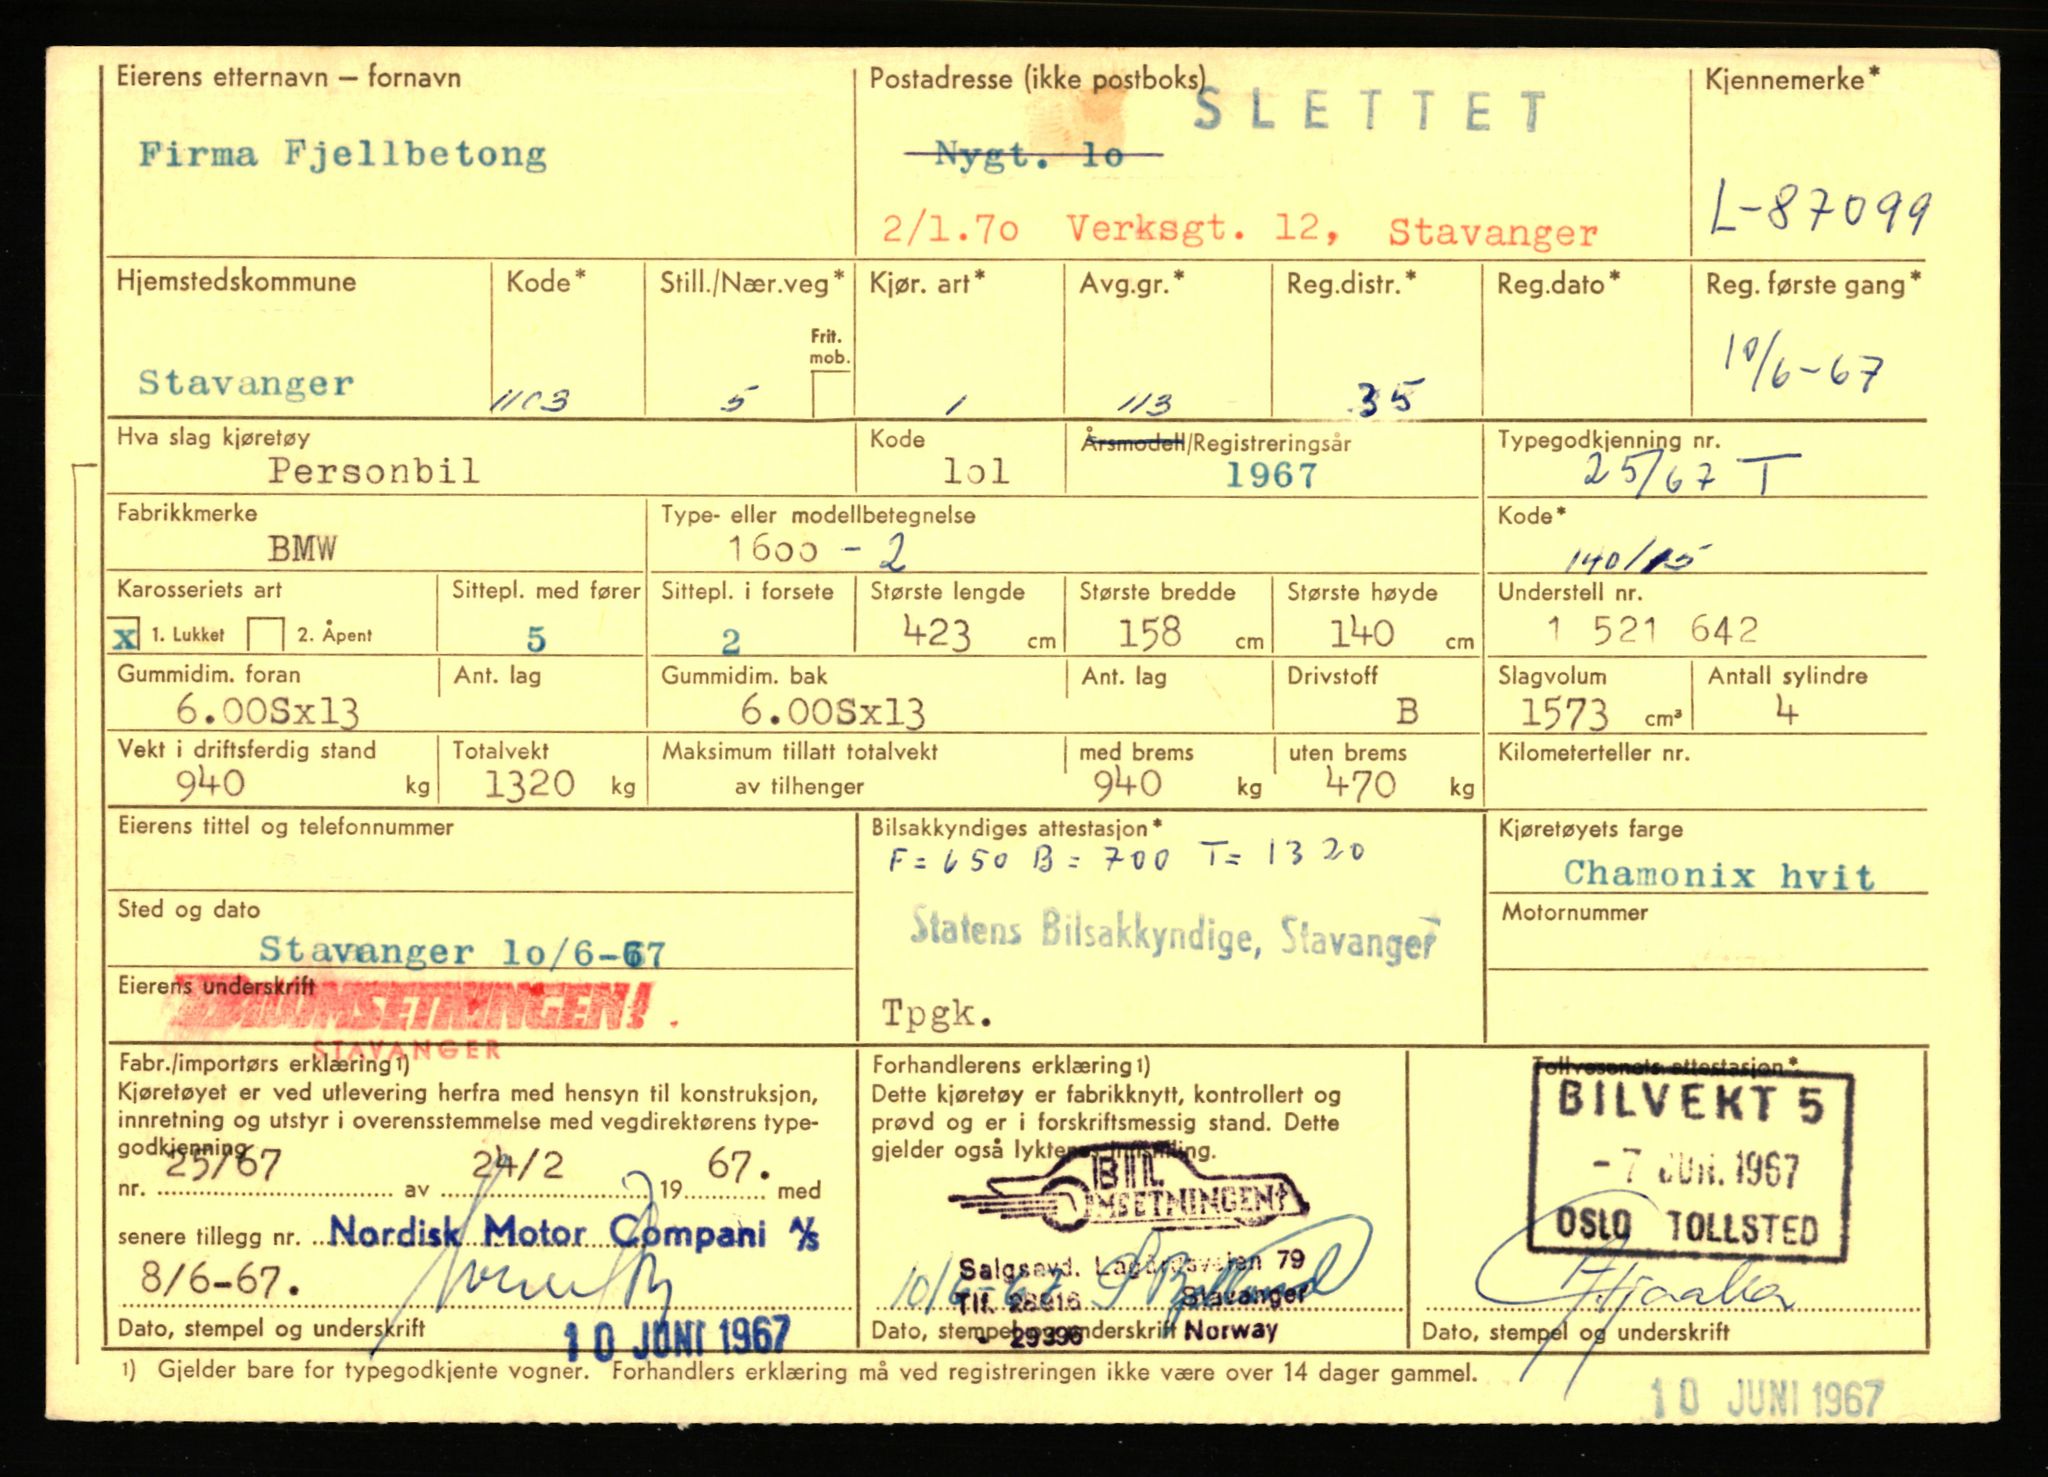 Eierens etternavn – fornavn
Firma Fjellbetong
Postadresse (ikke postboks)
SLETTET
Nygt. lo
2/1.7o Verksgt. 12, Stavanger
Kjennemerke*
L-87099
Hjemstedskommune
Stavanger
Kode*
1103
Still./Nær.veg*
Frit. mob.
5
Kjør. art*
1
Avg.gr.*
113
Reg.distr.*
35
Reg.dato*
Reg. første gang*
10/6-67
Hva slag kjøretøy
Personbil
Kode
lol
Årsmodell/Registreringsår
1967
Typegodkjenning nr.
25/67 T
Fabrikkmerke
BMW
Type- eller modellbetegnelse
1600 - 2
Kode*
140/15
Karosseriets art
x 1. Lukket 2. Åpent
Sittepl. med fører
5
Sittepl. i forsete
2
Største lengde
423 cm
Største bredde
158 cm
Største høyde
140 cm
Understell nr.
1 521 642
Gummidim. foran
6.00Sx13
Ant. lag
Gummidim. bak
6.00Sx13
Ant. lag
Drivstoff
B
Slagvolum
1573 cm³
Antall sylindre
4
Vekt i driftsferdig stand
940 kg
Totalvekt
1320 kg
Maksimum tillatt totalvekt
av tilhenger
med brems
940 kg
uten brems
470 kg
Kilometerteller nr.
Eierens tittel og telefonnummer
Bilsakkyndiges attestasjon*
F=650 B=700 T=1320
Statens Bilsakkyndige, Stavanger
Tpgk.
Kjøretøyets farge
Chamonix hvit
Sted og dato
Stavanger lo/6-67
Motornummer
Eierens underskrift
BILOMSETNINGEN!
STAVANGER
Fabr./importørs erklæring 1)
Kjøretøyet er ved utlevering herfra med hensyn til konstruksjon,
innretning og utstyr i overensstemmelse med vegdirektørens type-
godkjenning
nr. 25/67 av 24/2 19 67. med
senere tillegg nr. Nordisk Motor Compani A/S
8/6-67.
Dato, stempel og underskrift
10 JUNI 1967
Forhandlerens erklæring 1)
Dette kjøretøy er fabrikknytt, kontrollert og
prøvd og er i forskriftsmessig stand. Dette
gjelder også lyktenes innstilling.
BIL
OMSETNINGEN!
Salgsavd. Lagårdsveien 79
10/6-67
Tlf. 28616 Stavanger
- 29396 Norway
Dato, stempel og underskrift
Tollvesenets attestasjon*
BILVEKT 5
- 7 JUN. 1967
OSLO TOLLSTED
Dato, stempel og underskrift
1) Gjelder bare for typegodkjente vogner. Forhandlers erklæring må ved registreringen ikke være over 14 dager gammel.
10 JUNI 1967